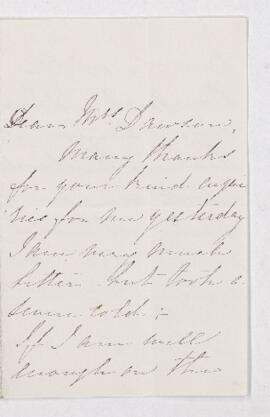 Dear Mrs Dawson,
Many thanks
for your kind enqui
ries for me yesterday
I am very much
better but took a
severe cold;-
If I am well
enough on the